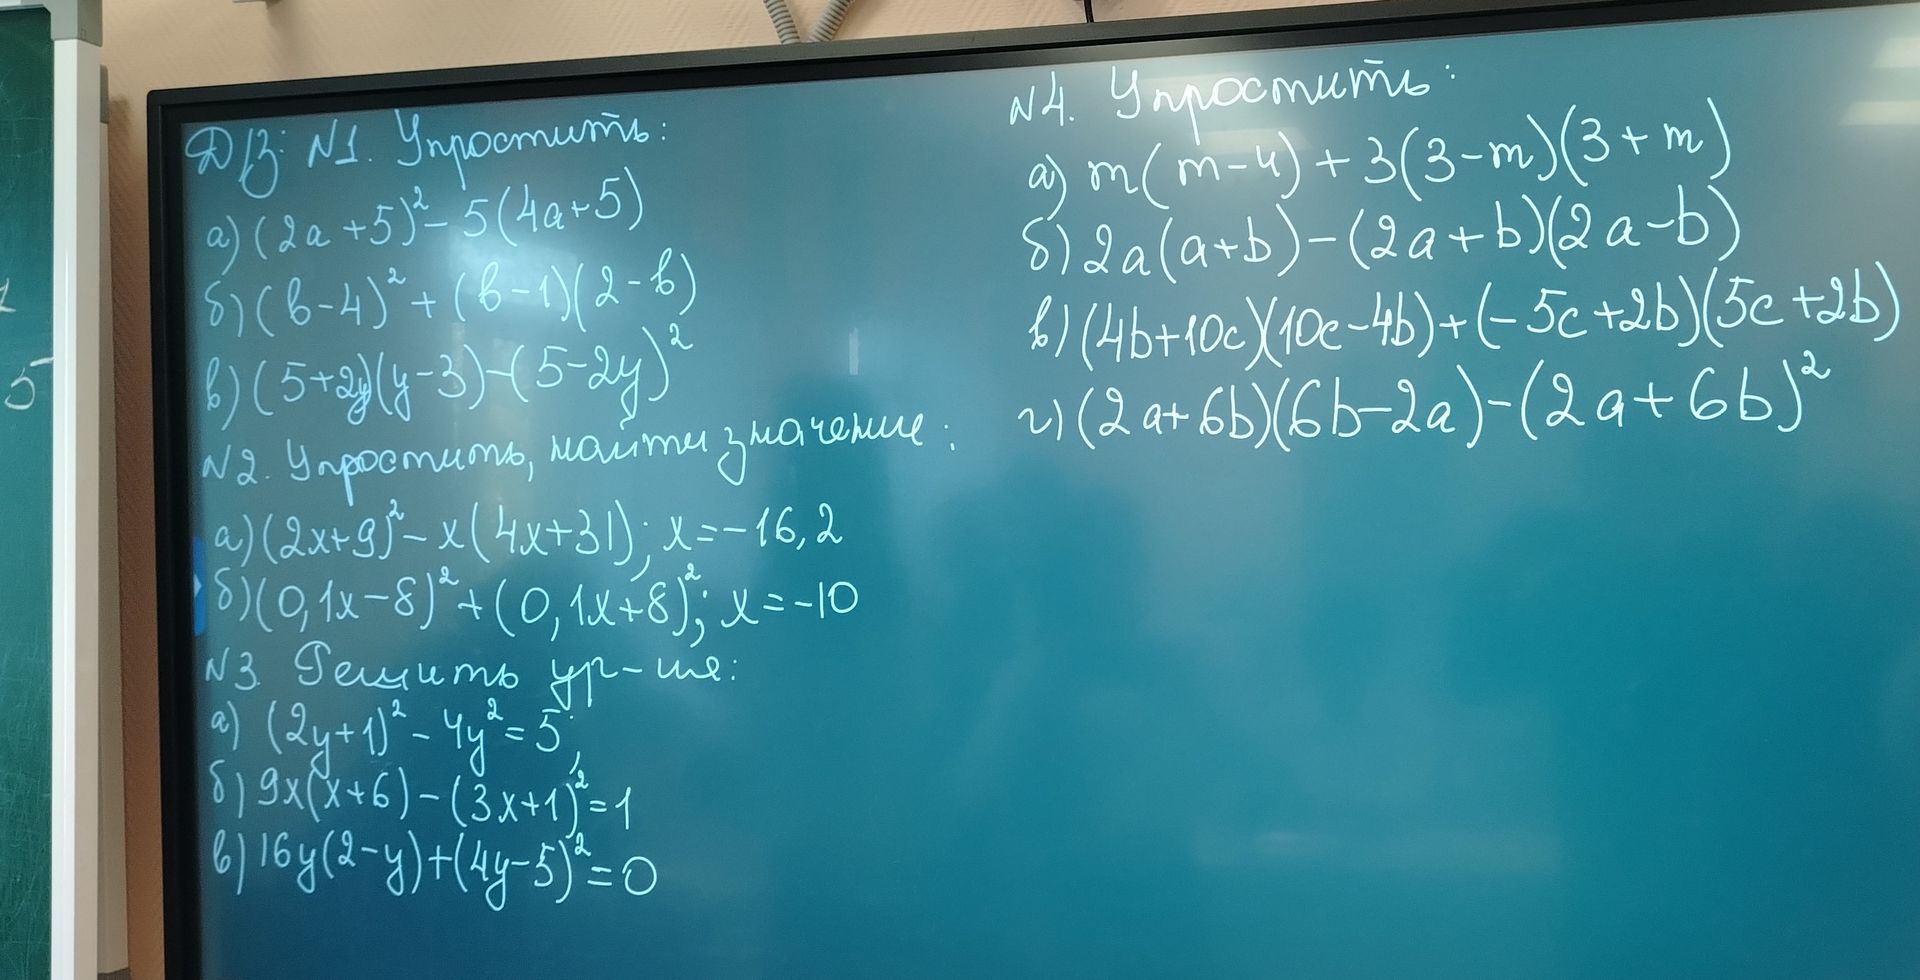 Д/З: №1. Упростить:
а) (2a+5)² - 5(4a+5)
б) (b-4)² + (b-1)(2-b)
в) (5+2y)(y-3) - (5-2y)²
№2. Упростить, найти значение:
а) (2x+9)² - x(4x+31); x=-16,2
б) (0,1x-8)² + (0,1x+8)²; x=-10
№3. Решить ур-ие:
а) (2y+1)² - 4y² = 5;
б) 9x(x+6) - (3x+1)² = 1
в) 16y(2-y) + (4y-5)² = 0
№4. Упростить:
а) m(m-4) + 3(3-m)(3+m)
б) 2a(a+b) - (2a+b)(2a-b)
в) (4b+10c)(10c-4b) + (-5c+2b)(5c+2b)
г) (2a+6b)(6b-2a) - (2a+6b)²
5